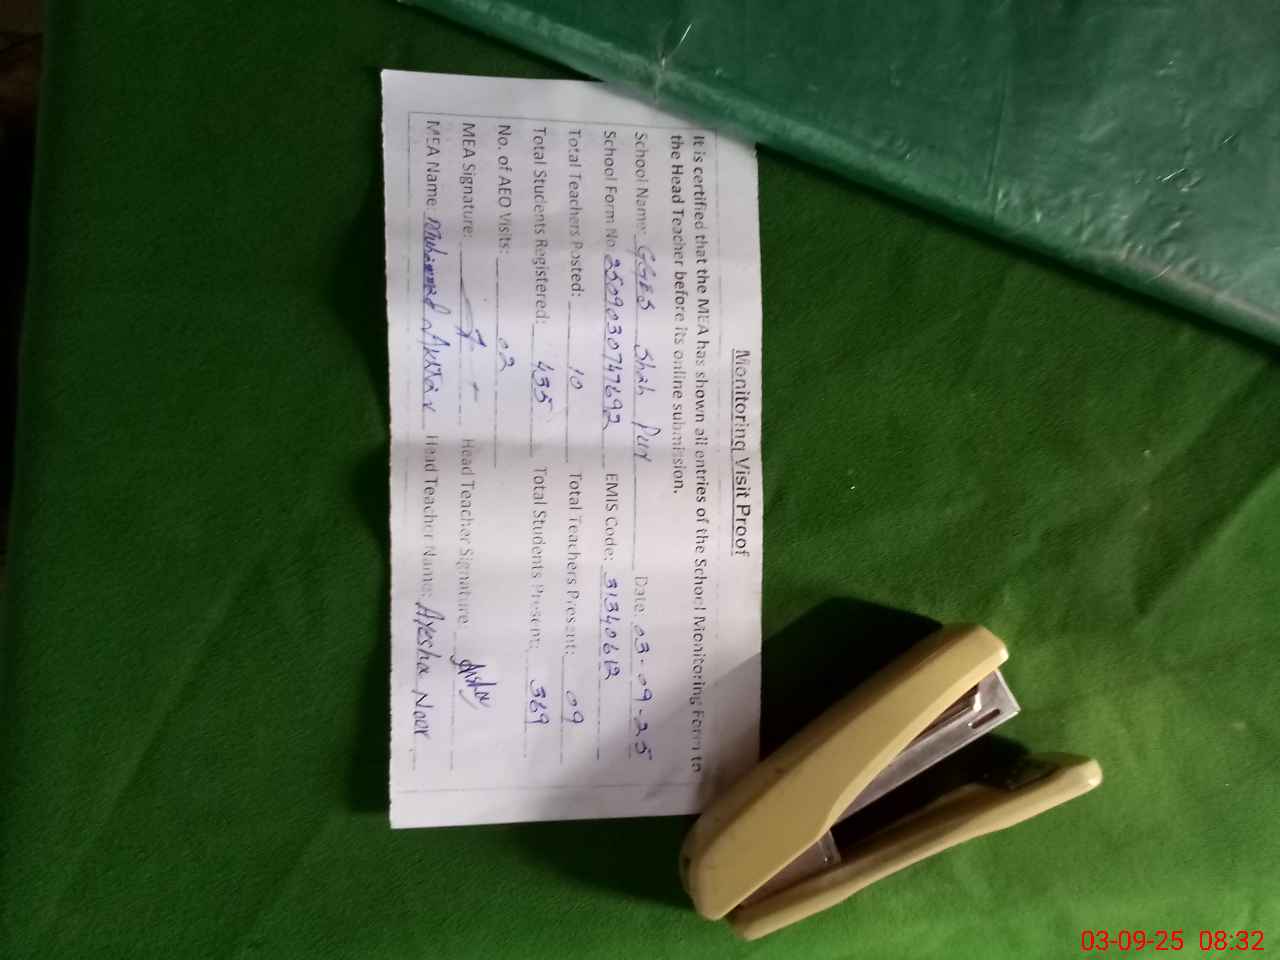 Monitoring Visit Proof
It is certified that the MEA has shown all entries of the School Monitoring Form to
the Head Teacher before its online submission.
School Name: GGES Shah Pur Date: 03-09-25
School Form No 2509030747692 EMIS Code: 31340612
Total Teachers Posted: 10 Total Teachers Present: 09
Total Students Registered: 435 Total Students Present: 369
No. of AEO Visits: 02
MEA Signature: Head Teacher Signature:
MEA Name: Muhammad Akhtar Head Teacher Name: Ayesha Noor
03-09-25 08:32